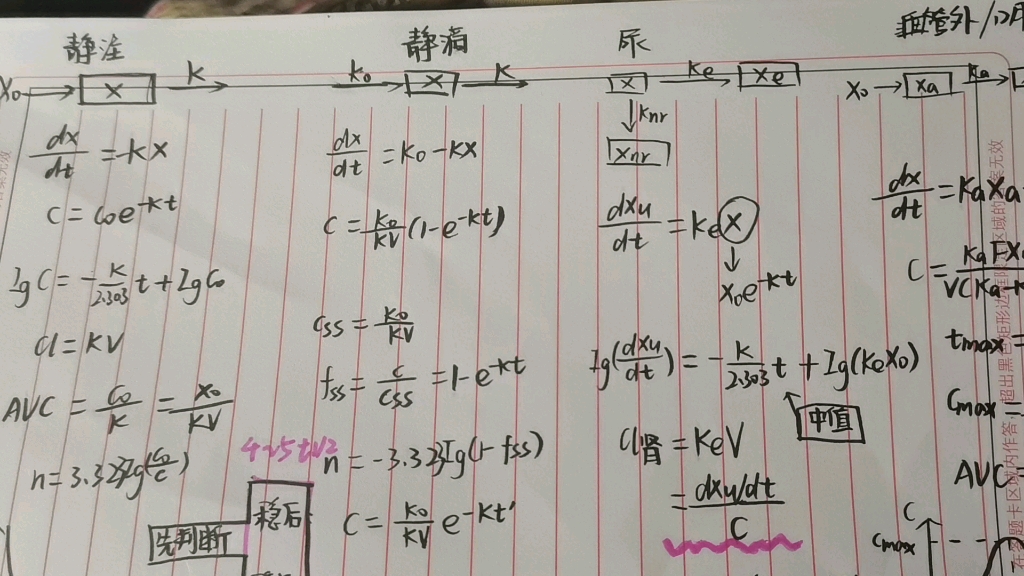 静注
X₀ → X K →
dx/dt = -KX
C = C₀e^-Kt
lgC = -K/2.303 t + lgC₀
Cl = KV
AVC = C₀/K = X₀/KV
n = 3.323lg(C₀/C)
先判断
静滴
K₀ → X K →
dx/dt = K₀-KX
C = K₀/KV (1-e^-Kt)
Css = K₀/KV
fss = C/Css = 1-e^-Kt
4~5 t1/2
n = -3.323lg(1-fss)
稳后
C = K₀/KV e^-Kt'
尿
X Ke → Xe
↓ Knr
Xnr
dXu/dt = KeX
↓
X₀e^-Kt
lg(dXu/dt) = -K/2.303 t + lg(KeX₀)
中值
Cl肾 = KeV
= dXu/dt / C
血管外/口服
X₀ → Xa Ka →
dx/dt = KaXa
C = KaFX₀
V(Ka-K
tmax =
Cmax =
AVC
C
Cmax